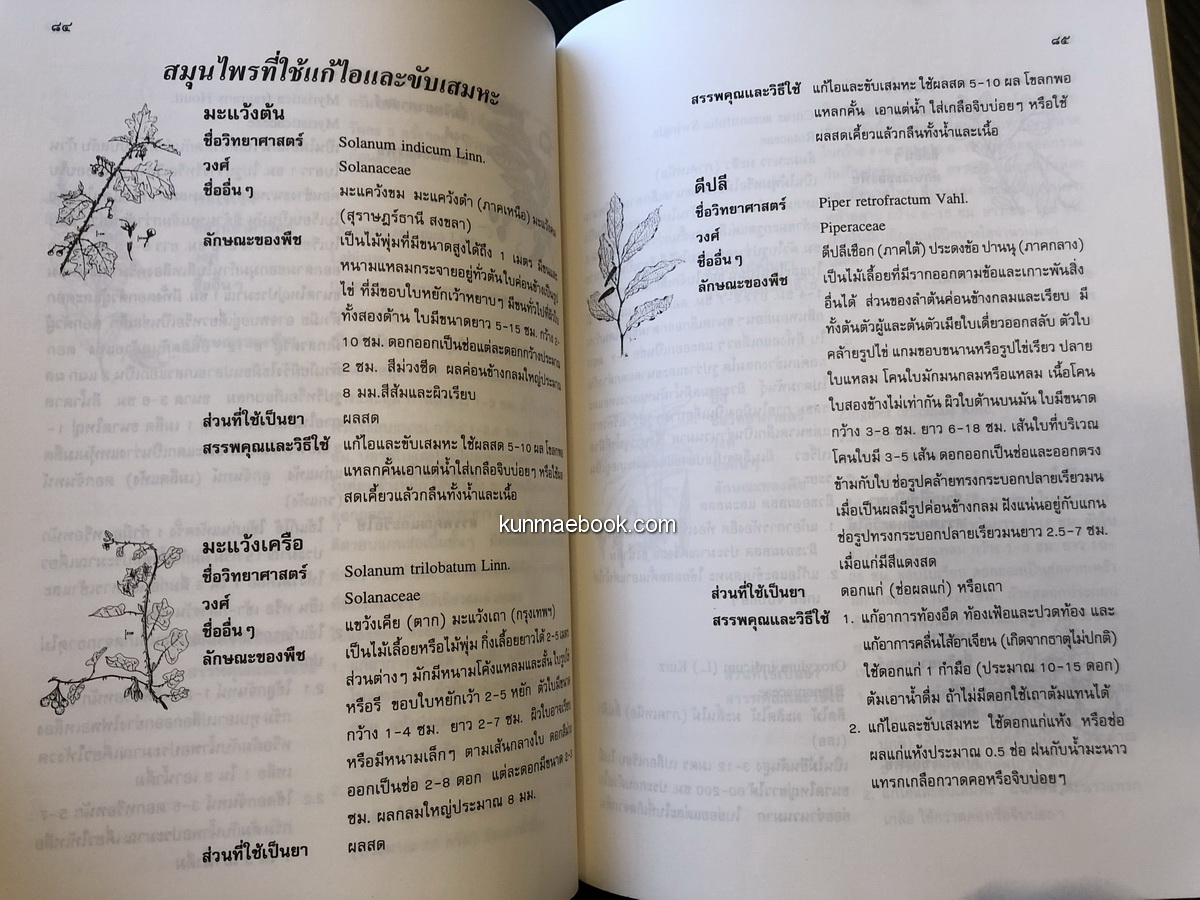 ๘๔
สมุนไพรที่ใช้แก้ไอและขับเสมหะ
มะแว้งต้น
ชื่อวิทยาศาสตร์ Solanum indicum Linn.
วงศ์ Solanaceae
ชื่ออื่นๆ มะแคว้งขม มะแคว้งดำ (ภาคเหนือ) มะแว้งคม
(สุราษฎร์ธานี สงขลา)
ลักษณะของพืช เป็นไม้พุ่มที่มีขนาดสูงได้ถึง 1 เมตร มีขนและ
หนามแหลมกระจายอยู่ทั่วต้นใบค่อนข้างเป็นรูป
ไข่ ที่มีขอบใบหยักเว้าหยาบๆ มีขนทั่วไปที่ผิวใบ
ทั้งสองด้าน ใบมีขนาดยาว 5-15 ซม. กว้าง 2-
10 ซม. ดอกออกเป็นช่อแต่ละดอกกว้างประมาณ
2 ซม. สีม่วงซีด ผลค่อนข้างกลมใหญ่ประมาณ
8 มม.สีส้มและผิวเรียบ
ส่วนที่ใช้เป็นยา ผลสด
สรรพคุณและวิธีใช้ แก้ไอและขับเสมหะ ใช้ผลสด 5-10 ผล โขลกพอ
แหลกคั้นเอาแต่น้ำใส่เกลือจิบบ่อยๆ หรือใช้ผล
สดเคี้ยวแล้วกลืนทั้งน้ำและเนื้อ
kunmaebook.com
มะแว้งเครือ
ชื่อวิทยาศาสตร์ Solanum trilobatum Linn.
วงศ์ Solanaceae
ชื่ออื่นๆ แขว้งเคีย (ตาก) มะแว้งเถา (กรุงเทพฯ)
ลักษณะของพืช เป็นไม้เลื้อยหรือไม้พุ่ม กิ่งเลื้อยยาวได้ 2-5 เมตร
ส่วนต่างๆ มักมีหนามโค้งแหลมและสั้น ใบรูปไข่
หรือรี ขอบใบหยักเว้า 2-5 หยัก ตัวใบมีขนาด
กว้าง 1-4 ซม. ยาว 2-7 ซม. ผิวใบอาจเรียบ
หรือมีหนามเล็กๆ ตามเส้นกลางใบ ดอกสีม่วง
ออกเป็นช่อ 2-8 ดอก แต่ละดอกมีขนาด 2-3
ซม. ผลกลมใหญ่ประมาณ 8 มม.
ส่วนที่ใช้เป็นยา ผลสด
๘๕
สรรพคุณและวิธีใช้ แก้ไอและขับเสมหะ ใช้ผลสด 5-10 ผล โขลกพอ
แหลกคั้น เอาแต่น้ำ ใส่เกลือจิบบ่อยๆ หรือใช้
ผลสดเคี้ยวแล้วกลืนทั้งน้ำและเนื้อ
ดีปลี
ชื่อวิทยาศาสตร์ Piper retrofractum Vahl.
วงศ์ Piperaceae
ชื่ออื่นๆ ดีปลีเชือก (ภาคใต้) ประดงข้อ ปานนุ (ภาคกลาง)
ลักษณะของพืช เป็นไม้เลื้อยที่มีรากออกตามข้อและเกาะพันสิ่ง
อื่นได้ ส่วนของลำต้นค่อนข้างกลมและเรียบ มี
ทั้งต้นตัวผู้และต้นตัวเมียใบเดี่ยวออกสลับ ตัวใบ
คล้ายรูปไข่ แกมขอบขนานหรือรูปไข่เรียว ปลาย
ใบแหลม โคนใบมักมนกลมหรือแหลม เนื้อโคน
ใบสองข้างไม่เท่ากัน ผิวใบด้านบนมัน ใบมีขนาด
กว้าง 3-8 ซม. ยาว 6-18 ซม. เส้นใบที่บริเวณ
โคนใบมี 3-5 เส้น ดอกออกเป็นช่อและออกตรง
ข้ามกับใบ ช่อรูปคล้ายทรงกระบอกปลายเรียวมน
เมื่อเป็นผลมีรูปค่อนข้างกลม ฝังแน่นอยู่กับแกน
ช่อรูปทรงกระบอกปลายเรียวมนยาว 2.5-7 ซม.
เมื่อแก่มีสีแดงสด
ส่วนที่ใช้เป็นยา ดอกแก่ (ช่อผลแก่) หรือเถา
สรรพคุณและวิธีใช้ 1. แก้อาการท้องอืด ท้องเฟ้อและปวดท้อง และ
แก้อาการคลื่นไส้อาเจียน (เกิดจากธาตุไม่ปกติ)
ใช้ดอกแก่ 1 กำมือ (ประมาณ 10-15 ดอก)
ต้มเอาน้ำดื่ม ถ้าไม่มีดอกใช้เถาต้มแทนได้
2. แก้ไอและขับเสมหะ ใช้ดอกแก่แห้ง หรือช่อ
ผลแก่แห้งประมาณ 0.5 ช่อ ฝนกับน้ำมะนาว
แทรกเกลือกวาดคอหรือจิบบ่อยๆ